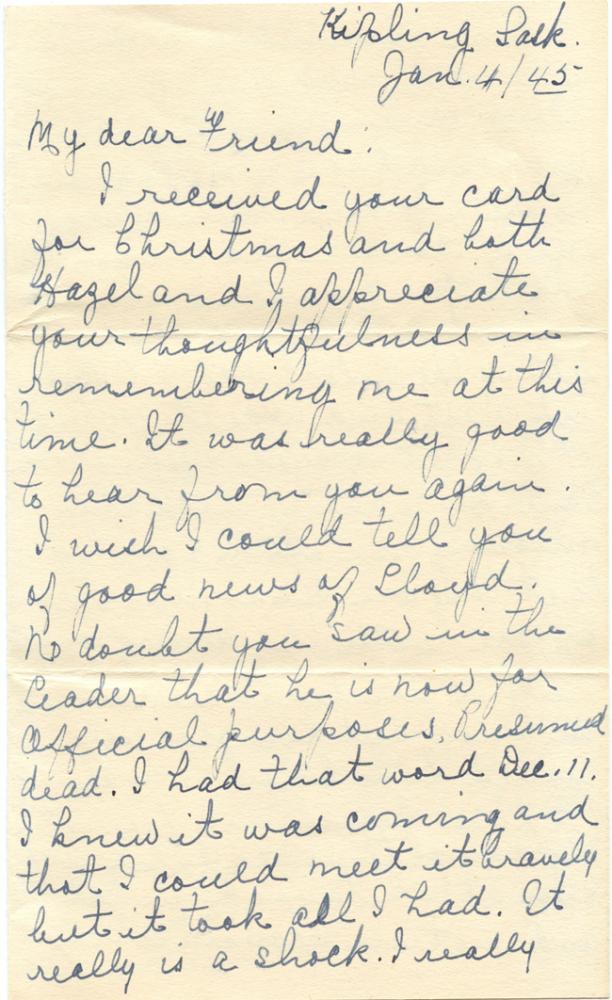 Kipling Sask.
Jan. 4/45
My dear Friend:
I received your card
for Christmas and both
Hazel and I appreciate
your thoughtfulness in
remembering me at this
time. It was really good
to hear from you again.
I wish I could tell you
of good news of Lloyd.
No doubt you saw in the
Leader that he is now for
Official purposes, Presumed
dead. I had that word Dec. 11.
I knew it was coming and
that I could meet it bravely
but it took all I had. It
really is a shock. I really